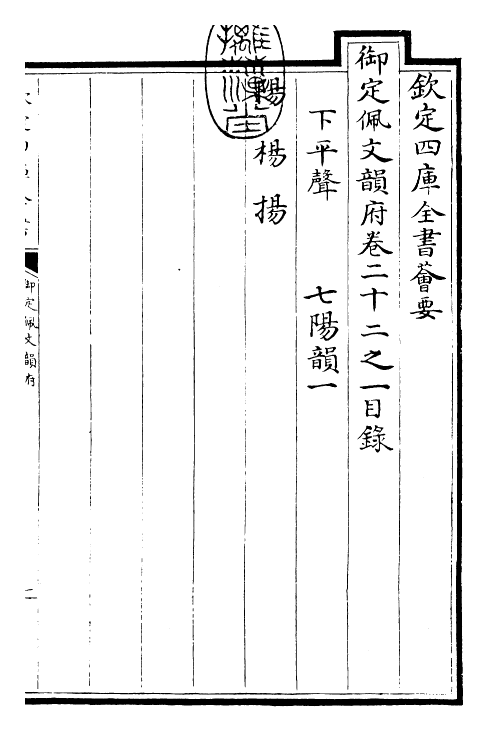 欽定四庫全書薈要
御定佩文韻府卷二十二之一目錄
下平聲　七陽韻一
楊　揚
御定佩文韻府